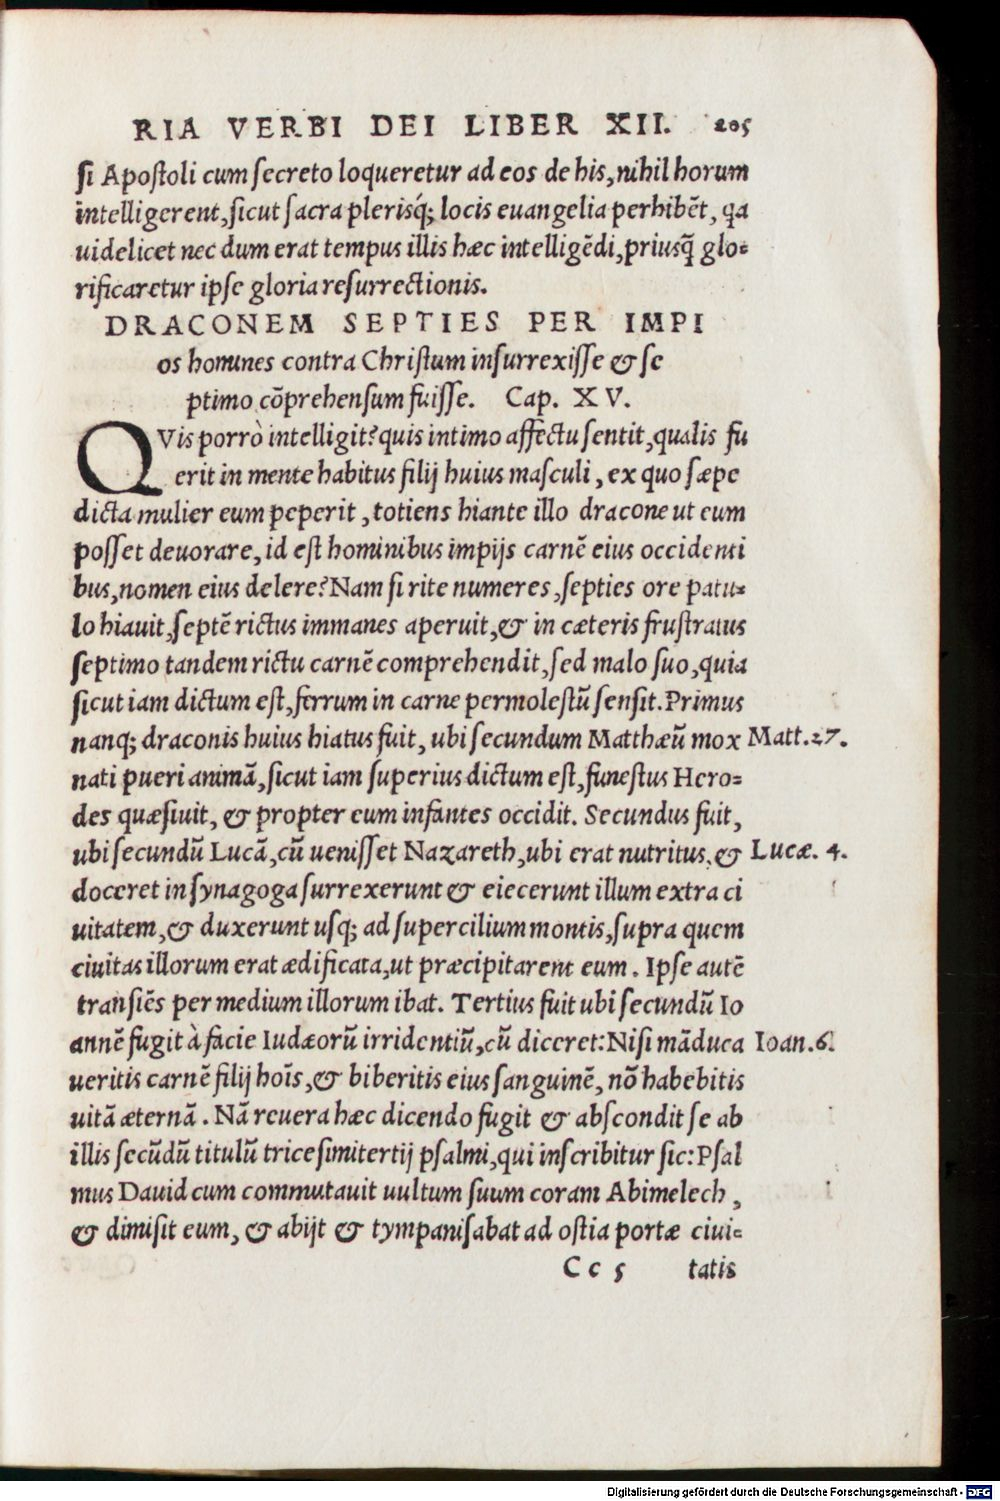 RIA VERBI DEI LIBER XII. 205
si Apostoli cum secreto loqueretur ad eos de his, nihil horum
intelligerent, sicut sacra plerisq́; locis euangelia perhibēt, qa
uidelicet nec dum erat tempus illis hæc intelligēdi, priusq̃ glo-
rificaretur ipse gloria resurrectionis.
DRACONEM SEPTIES PER IMPI
os homines contra Christum insurrexisse & se
ptimo cōprehensum fuisse. Cap. XV.
QVis porrò intelligit? quis intimo affectu sentit, qualis fu
erit in mente habitus filij huius masculi, ex quo sæpe
dicta mulier eum peperit, totiens hiante illo dracone ut eum
posset deuorare, id est hominibus impijs carnē eius occidenti
bus, nomen eius delere? Nam si rite numeres, septies ore patu-
lo hiauit, septē rictus immanes aperuit, & in cæteris frustratus
septimo tandem rictu carnē comprehendit, sed malo suo, quia
sicut iam dictum est, ferrum in carne permolestũ sensit. Primus
nanq; draconis huius hiatus fuit, ubi secundum Matthæũ mox Matt. 27.
nati pueri animā, sicut iam superius dictum est, funestus Hero-
des quæsiuit, & propter eum infantes occidit. Secundus fuit,
ubi secundũ Lucā, cũ uenisset Nazareth, ubi erat nutritus, & Lucæ. 4.
doceret in synagoga surrexerunt & eiecerunt illum extra ci
uitatem, & duxerunt usq; ad supercilium montis, supra quem
ciuitas illorum erat ædificata, ut præcipitarent eum. Ipse autē
transiēs per medium illorum ibat. Tertius fuit ubi secundũ Io
annē fugit à facie Iudæorũ irridentiũ, cũ diceret: Nisi māduca Ioan. 6.
ueritis carnē filij hoīs, & biberitis eius sanguinē, nō habebitis
uitā æternā. Nā reuera hæc dicendo fugit & abscondit se ab
illis secũdũ titulũ tricesimitertij psalmi, qui inscribitur sic: Psal
mus Dauid cum commutauit uultum suum coram Abimelech,
& dimisit eum, & abijt & tympanisabat ad ostia portæ ciui-
Cc 5 tatis
Digitalisierung gefördert durch die Deutsche Forschungsgemeinschaft - DFG